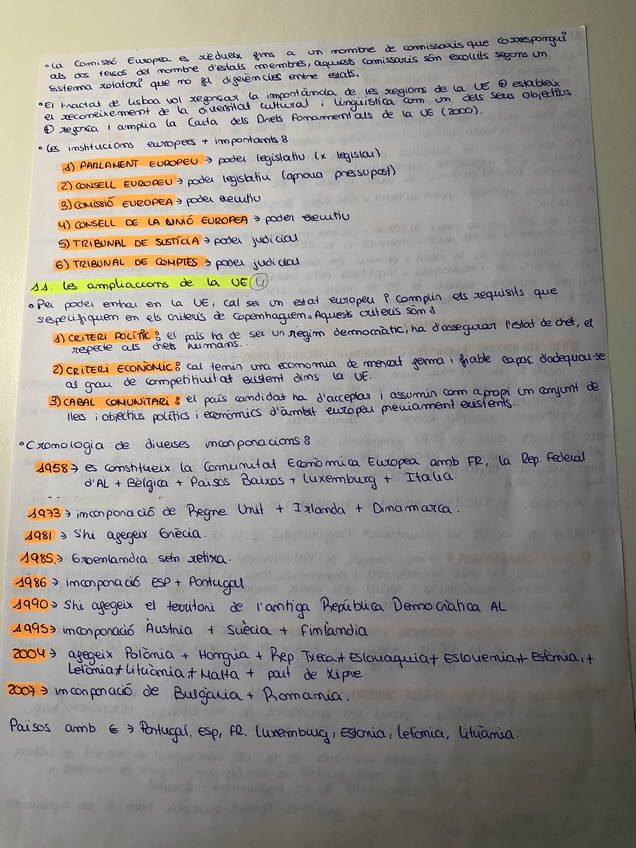 • La Comissió Europea es redueix fins a un nombre de comissaris que correspongui
als dos terços del nombre d'estats membres, aquests comissaris són escollits segons un
sistema rotatori que no fa diferències entre estats.
• El tractat de Lisboa vol reforçar la importància de les regions de la UE ⊕ estableix
el reconeixement de la diversitat cultural i lingüística com un dels seus objectius
⊕ reforça i amplia la Carta dels Drets Fonamentals de la UE (2000).
• Les institucions europees + importants:
1) PARLAMENT EUROPEU → poder legislatiu (x legislar)
2) CONSELL EUROPEU → poder legislatiu (aprova pressupost)
3) COMISSIÓ EUROPEA → poder executiu
4) CONSELL DE LA UNIÓ EUROPEA → poder executiu
5) TRIBUNAL DE JUSTÍCIA → poder judicial
6) TRIBUNAL DE COMPTES → poder judicial
11. Les ampliacions de la UE (4)
• Per poder entrar en la UE, cal ser un estat europeu i complir els requisits que
s'especifiquen en els criteris de Copenhaguen. Aquests criteris són:
1) CRITERI POLÍTIC: el país ha de ser un règim democràtic, ha d'assegurar l'estat de dret, el
respecte als drets humans...
2) CRITERI ECONÒMIC: cal tenir una economia de mercat ferma i fiable capaç d'adequar-se
al grau de competitivitat existent dins la UE.
3) CABAL COMUNITARI: el país candidat ha d'acceptar i assumir com a propi un conjunt de
lleis i objectius polítics i econòmics d'àmbit europeu prèviament existents.
• Cronologia de diverses incorporacions:
1958 → es constitueix la Comunitat Econòmica Europea amb FR, la Rep. Federal
d'AL + Bèlgica + Països Baixos + Luxemburg + Itàlia.
1973 → incorporació de Regne Unit + Irlanda + Dinamarca.
1981 → S'hi afegeix Grècia.
1985 → Groenlàndia se'n retira.
1986 → incorporació ESP + Portugal
1990 → S'hi afegeix el territori de l'antiga República Democràtica AL
1995 → incorporació Àustria + Suècia + Finlàndia
2004 → afegeix Polònia + Hongria + Rep. Txeca + Eslovàquia + Eslovènia + Estònia, +
Letònia + Lituània + Malta + part de Xipre
2007 → incorporació de Bulgària + Romania.
Països amb € → Portugal, Esp, FR, Luxemburg, Estonia, Letonia, Lituània.